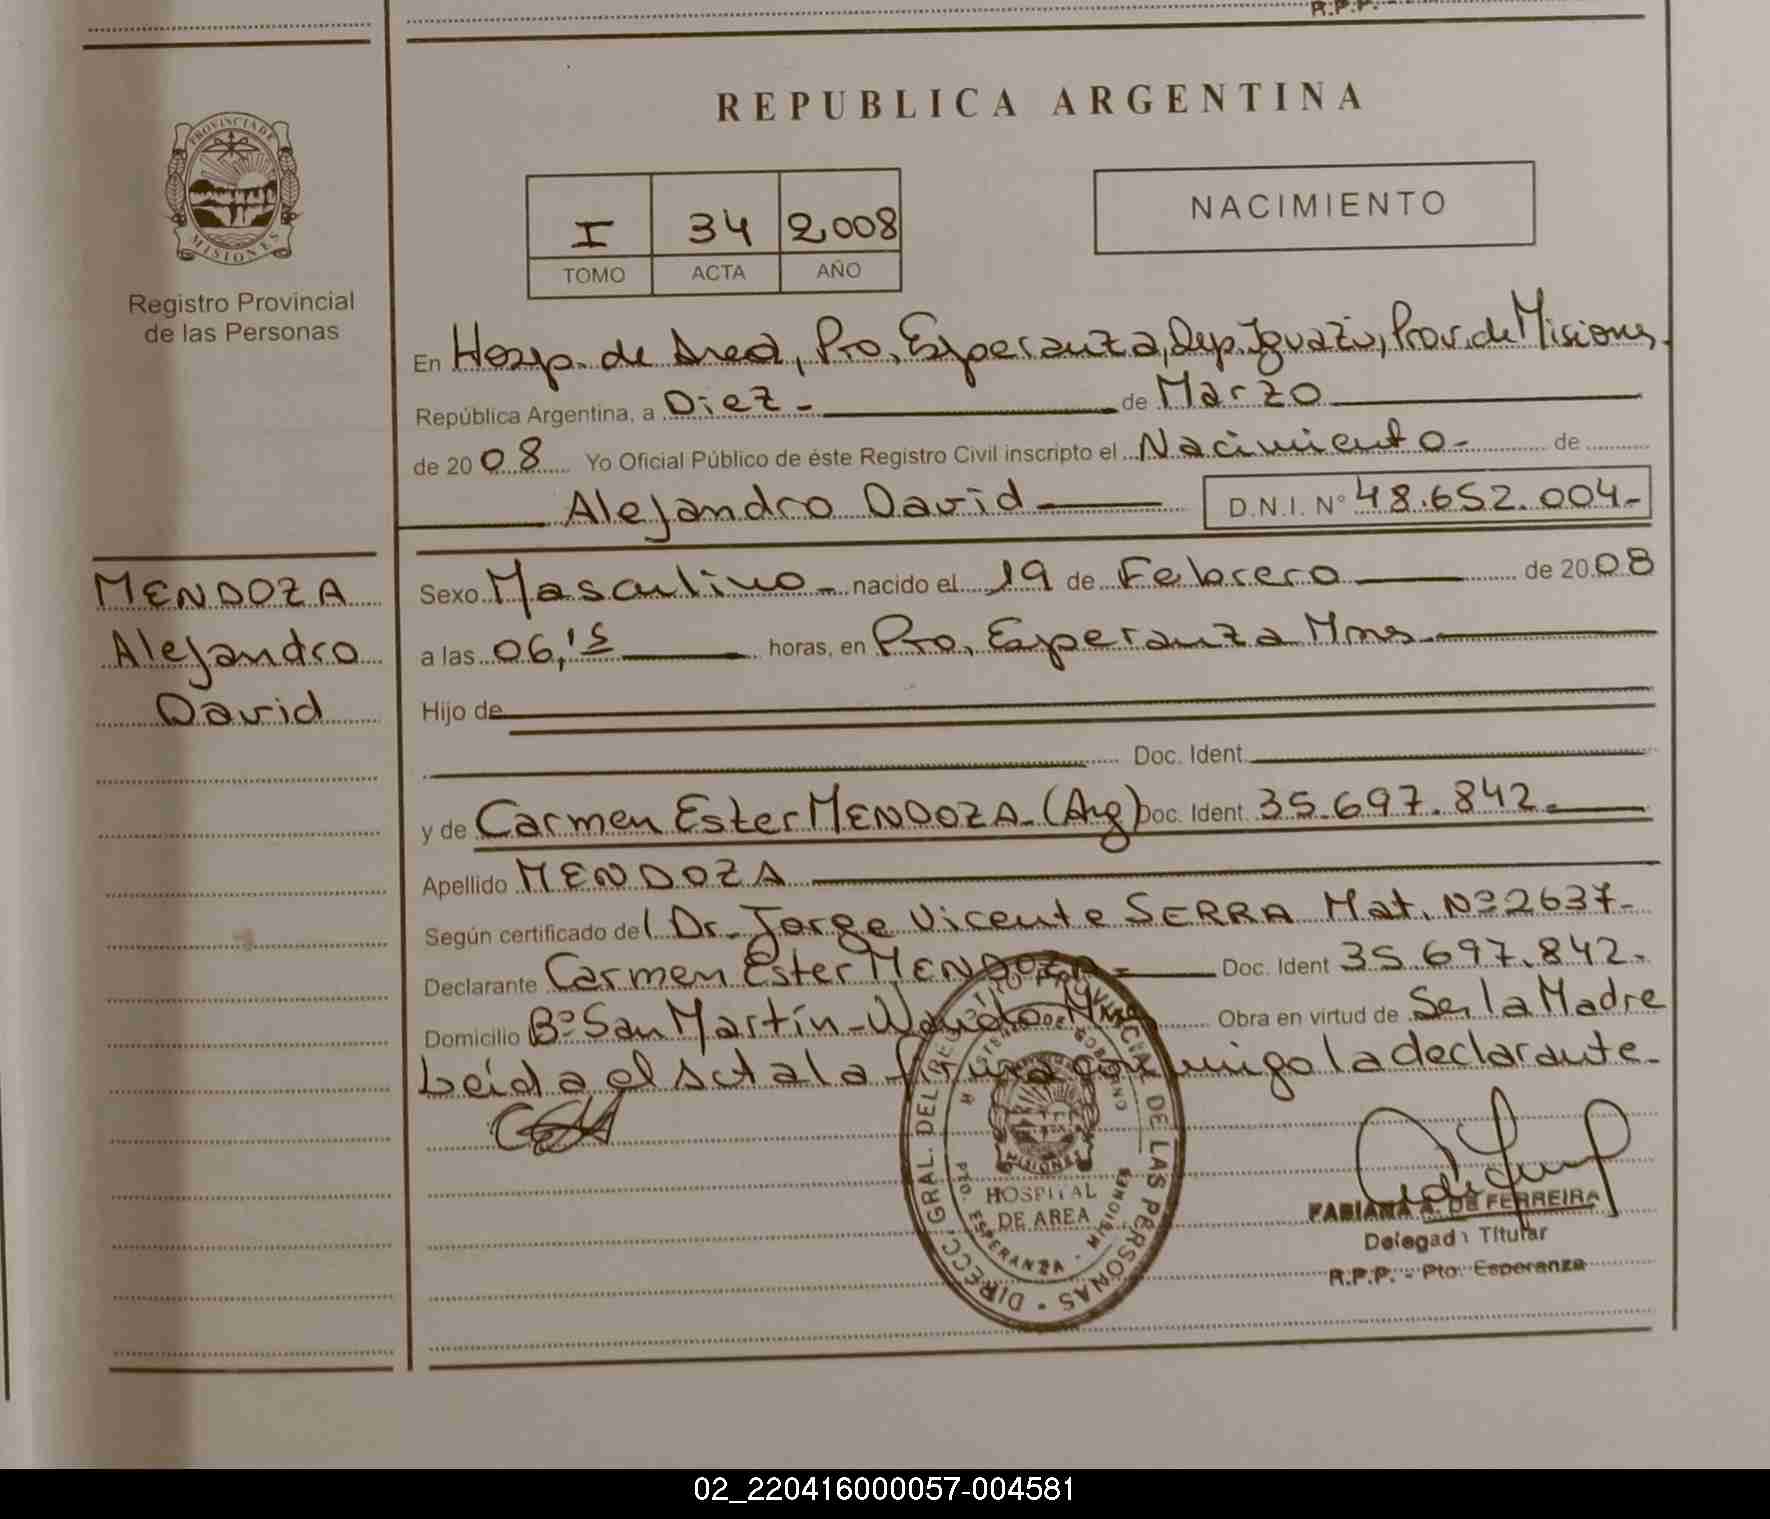 R.P.P. -
REPUBLICA ARGENTINA
PROVINCIA DE
MISIONES
Registro Provincial
de las Personas
I 34 2.008
TOMO ACTA AÑO
NACIMIENTO
En Hosp. de Area, Pto, Esperanza, Dep. Iguazú, Prov. de Misiones.
República Argentina, a Diez - de Marzo
de 20 08 Yo Oficial Público de éste Registro Civil inscripto el Nacimiento - de
Alejandro David D.N.I. Nº 48.652.004-
MENDOZA
Alejandro
David
Sexo Masculino - nacido el 19 de Febrero de 20 08
a las 06,15 horas, en Pto, Esperanza Mnes.
Hijo de
Doc. Ident.
y de Carmen Ester MENDOZA - (Arg) Doc. Ident. 35.697.842.
Apellido MENDOZA
Según certificado del Dr. Jorge Vicente SERRA Mat. Nº 2637-
Declarante Carmen Ester MENDOZA - Doc. Ident 35.697.842-
Domicilio Bº San Martín - Wanda Mnes Obra en virtud de Ser la Madre
Leída el Acta la firma conmigo la declarante.
CEM
DIRECC. GRAL. DEL REGISTRO PROVINCIAL DE LAS PERSONAS
MINISTERIO DE GOBIERNO
MISIONES
HOSPITAL
DE AREA
PTO. ESPERANZA - MISIONES
FABIANA A. DE FERREIRA
Delegada Titular
R.P.P. - Pto. Esperanza
02_220416000057-004581